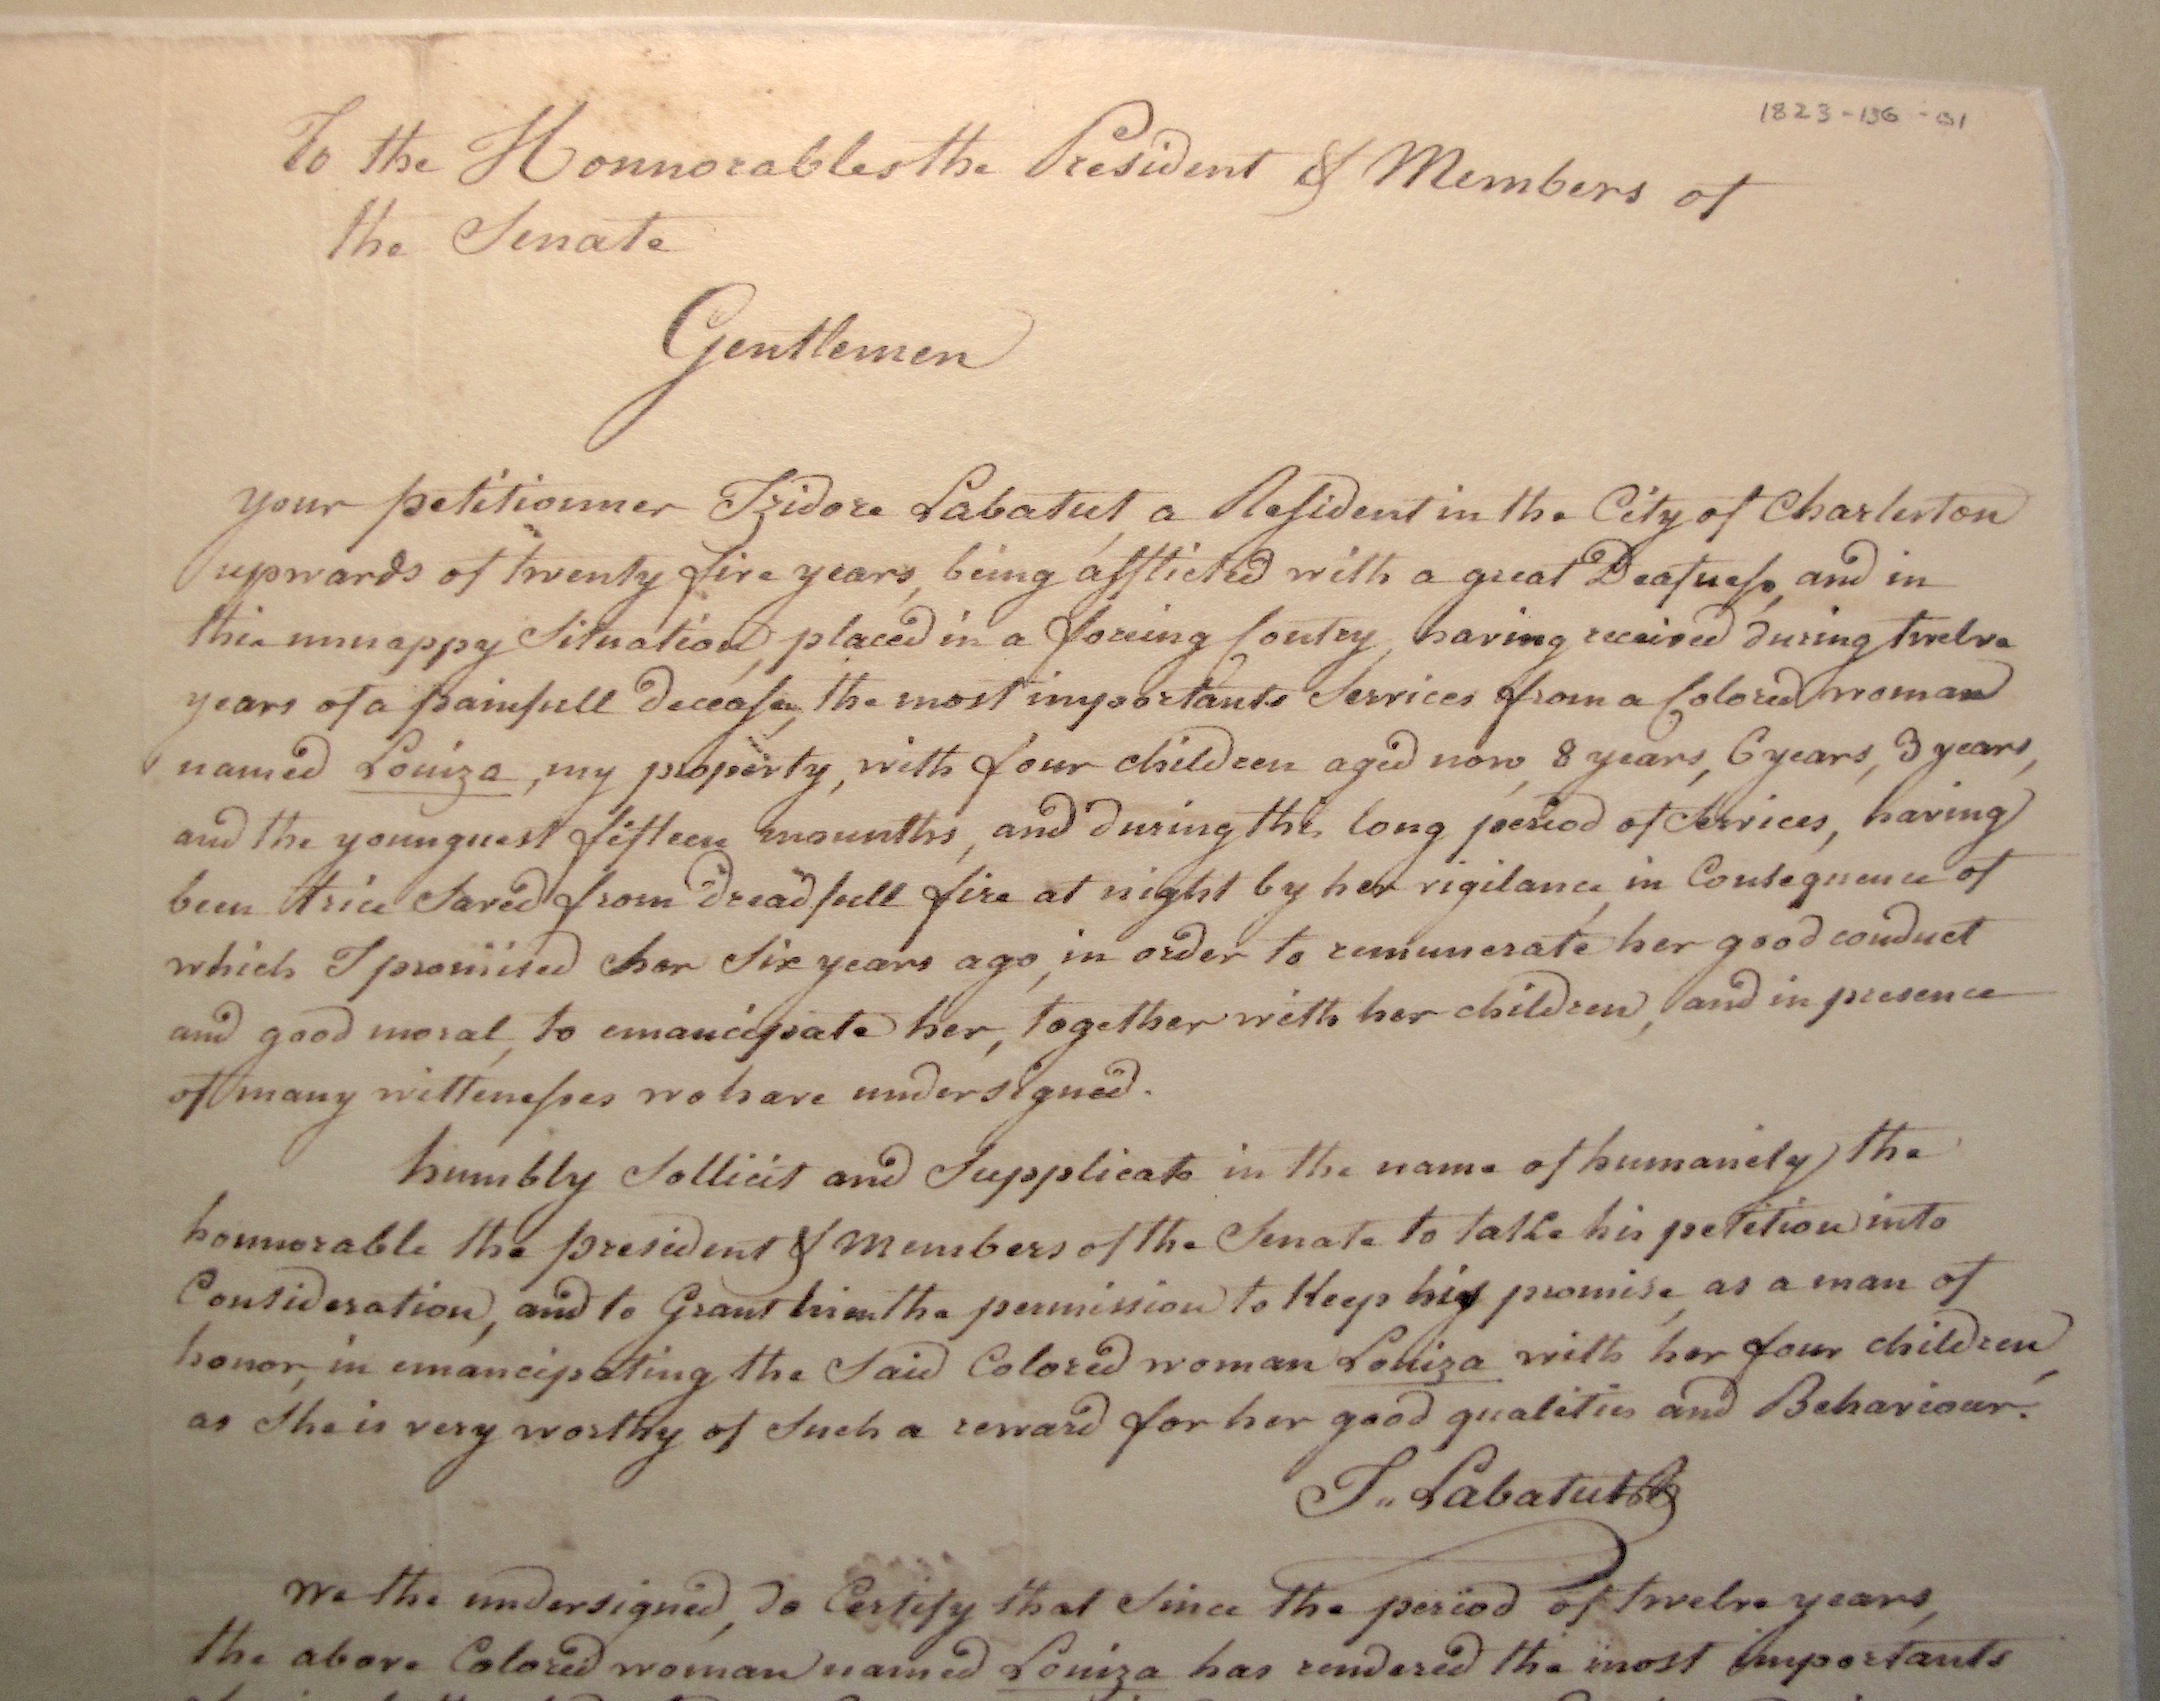 1823-156-01
To the Honnorables the President & Members of
the Senate
Gentlemen
your petitionner Izidore Labatut, a Resident in the City of Charleston
upwards of twenty five years, being afflicted with a great Deafness, and in
this unnappy Situation, placed in a foreing Contry, having received during twelve
years of a painfull Decease, the most importants Services from a Colored woman
named Louiza, my property, with four children aged now, 8 years, 6 years, 3 years,
and the younguest fifteen mounths, and during this long period of Services, having
been trice Saved from Dreadfull fire at night by her vigilance, in Consequence of
which I promised her Six years ago, in order to remunerate her good conduct
and good moral, to emancipate her, together with her children, and in presence
of many wittenesses wo have undersigned.
humbly Sollicit and Supplicate in the name of humanity the
honnorable the president & Members of the Senate to take his petition into
Consideration, and to Grant him the permission to Keep his promise, as a man of
honor, in emancipating the Said Colored woman Louiza with her four children,
as She is very worthy of Such a reward for her good qualities and Behaviour.
I,, Labatut
We the undersigned, Do Certify that Since the period of twelve years,
the above Colored woman named Louiza has rendered the most importants